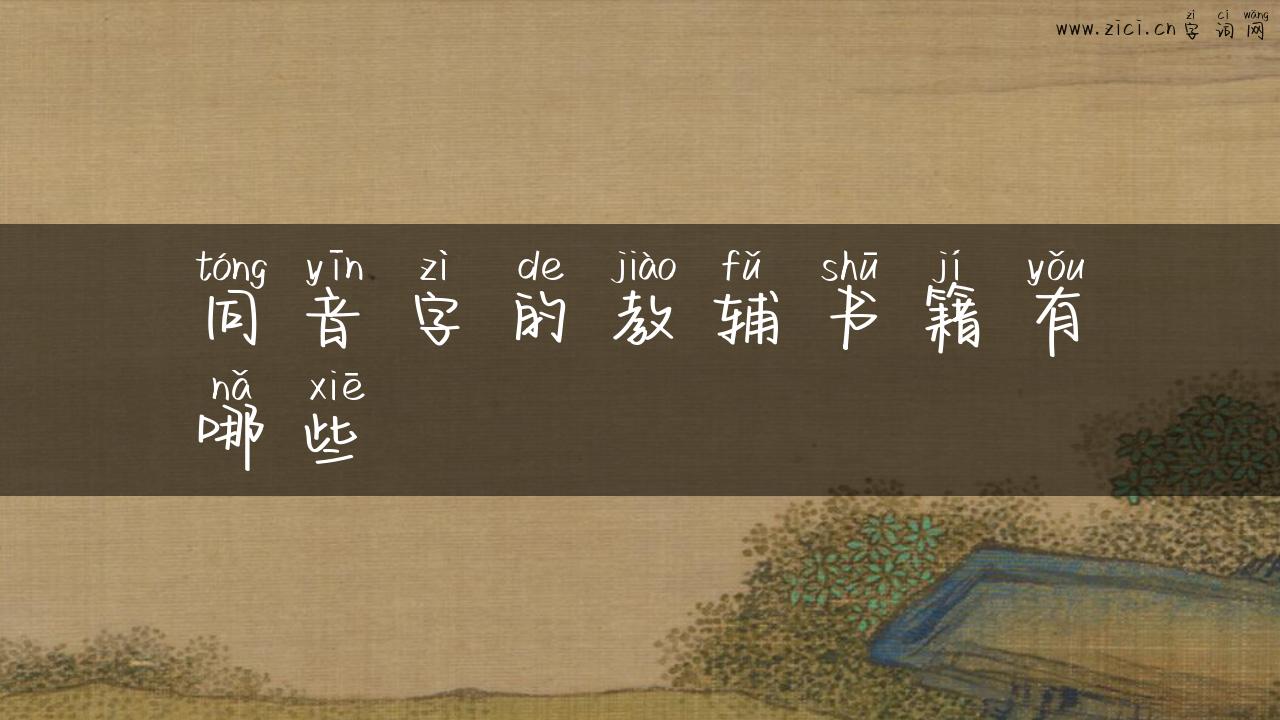 zì cí wǎng
www.zici.cn 字词网
tóng yīn zì de jiào fǔ shū jí yǒu
同音字的教辅书籍有
nǎ xiē
哪些